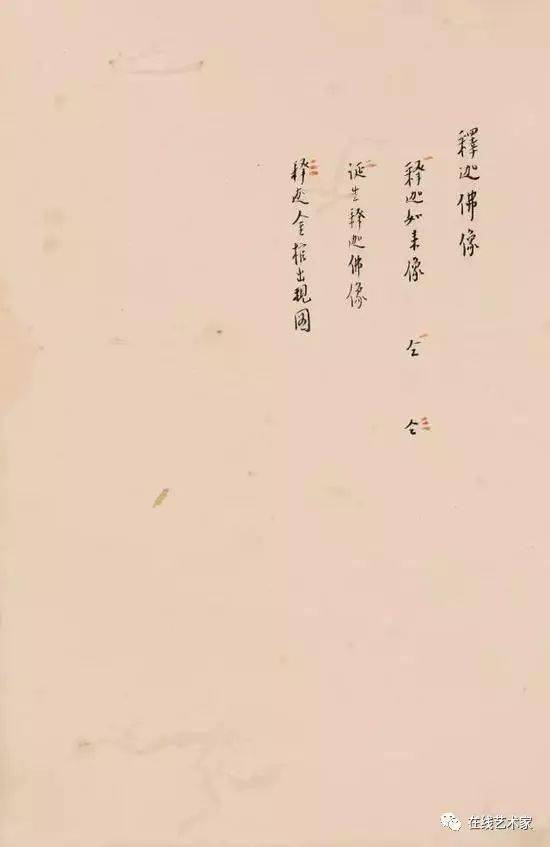 釋迦佛像
一 釋迦如来像 一 仝 三 仝
二 诞生釋迦佛像
三 釋迦金棺出現图
在线艺术家